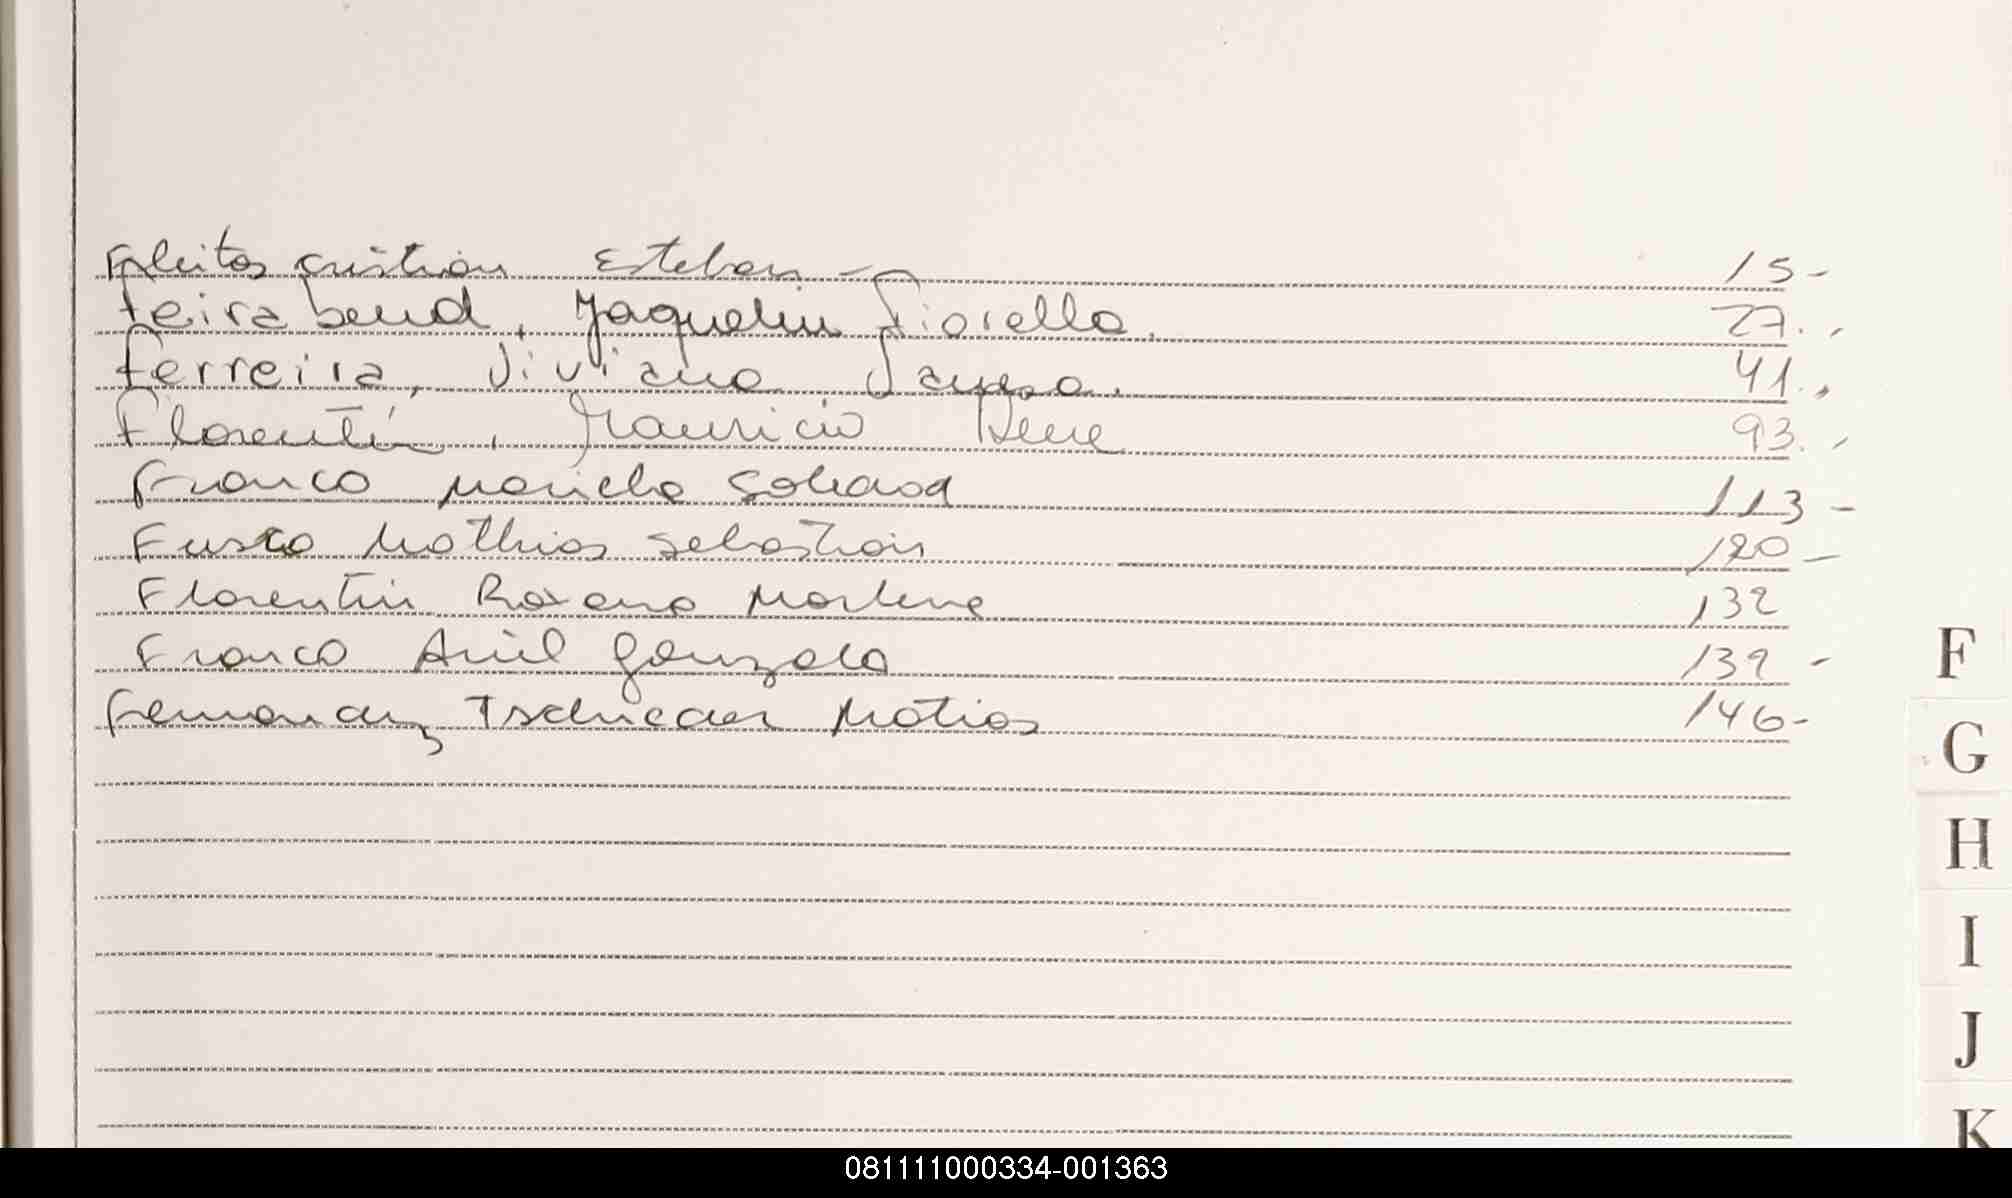 Fleitas Cristian Esteban - 15-
Feirabend, Jaquelin Fiorella. 27.-
Ferreira, Viviana 41.-
Florentín, Mauricio Rene 93.-
Franco Maricha Soledad 113-
Fusco Mathias Sebastian 120-
Florentin Roxana Marlene 132
Franco Ariel Gonzalo 139-
Fernandez Matias 146-
F
G
H
I
J
K
081111000334-001363